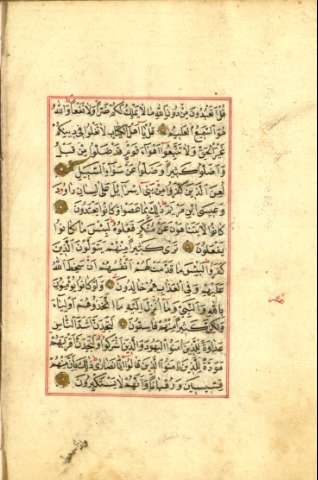 قُلْ أَتَعْبُدُونَ مِنْ دُونِ اللَّهِ مَا لَا يَمْلِكُ لَكُمْ ضَرًّا وَلَا نَفْعًا وَاللَّهُ
هُوَ السَّمِيعُ الْعَلِيمُ قُلْ يَا أَهْلَ الْكِتَابِ لَا تَغْلُوا فِي دِينِكُمْ
غَيْرَ الْحَقِّ وَلَا تَتَّبِعُوا أَهْوَاءَ قَوْمٍ قَدْ ضَلُّوا مِنْ قَبْلُ
وَأَضَلُّوا كَثِيرًا وَضَلُّوا عَنْ سَوَاءِ السَّبِيلِ
لُعِنَ الَّذِينَ كَفَرُوا مِنْ بَنِي إِسْرَائِيلَ عَلَى لِسَانِ دَاوُدَ
وَعِيسَى ابْنِ مَرْيَمَ ذَلِكَ بِمَا عَصَوْا وَكَانُوا يَعْتَدُونَ
كَانُوا لَا يَتَنَاهَوْنَ عَنْ مُنْكَرٍ فَعَلُوهُ لَبِئْسَ مَا كَانُوا
يَفْعَلُونَ تَرَى كَثِيرًا مِنْهُمْ يَتَوَلَّوْنَ الَّذِينَ
كَفَرُوا لَبِئْسَ مَا قَدَّمَتْ لَهُمْ أَنْفُسُهُمْ أَنْ سَخِطَ اللَّهُ
عَلَيْهِمْ وَفِي الْعَذَابِ هُمْ خَالِدُونَ وَلَوْ كَانُوا يُؤْمِنُونَ
بِاللَّهِ وَالنَّبِيِّ وَمَا أُنْزِلَ إِلَيْهِ مَا اتَّخَذُوهُمْ أَوْلِيَاءَ
وَلَكِنَّ كَثِيرًا مِنْهُمْ فَاسِقُونَ لَتَجِدَنَّ أَشَدَّ النَّاسِ
عَدَاوَةً لِلَّذِينَ آمَنُوا الْيَهُودَ وَالَّذِينَ أَشْرَكُوا وَلَتَجِدَنَّ أَقْرَبَهُمْ
مَوَدَّةً لِلَّذِينَ آمَنُوا الَّذِينَ قَالُوا إِنَّا نَصَارَى ذَلِكَ بِأَنَّ مِنْهُمْ
قِسِّيسِينَ وَرُهْبَانًا وَأَنَّهُمْ لَا يَسْتَكْبِرُونَ